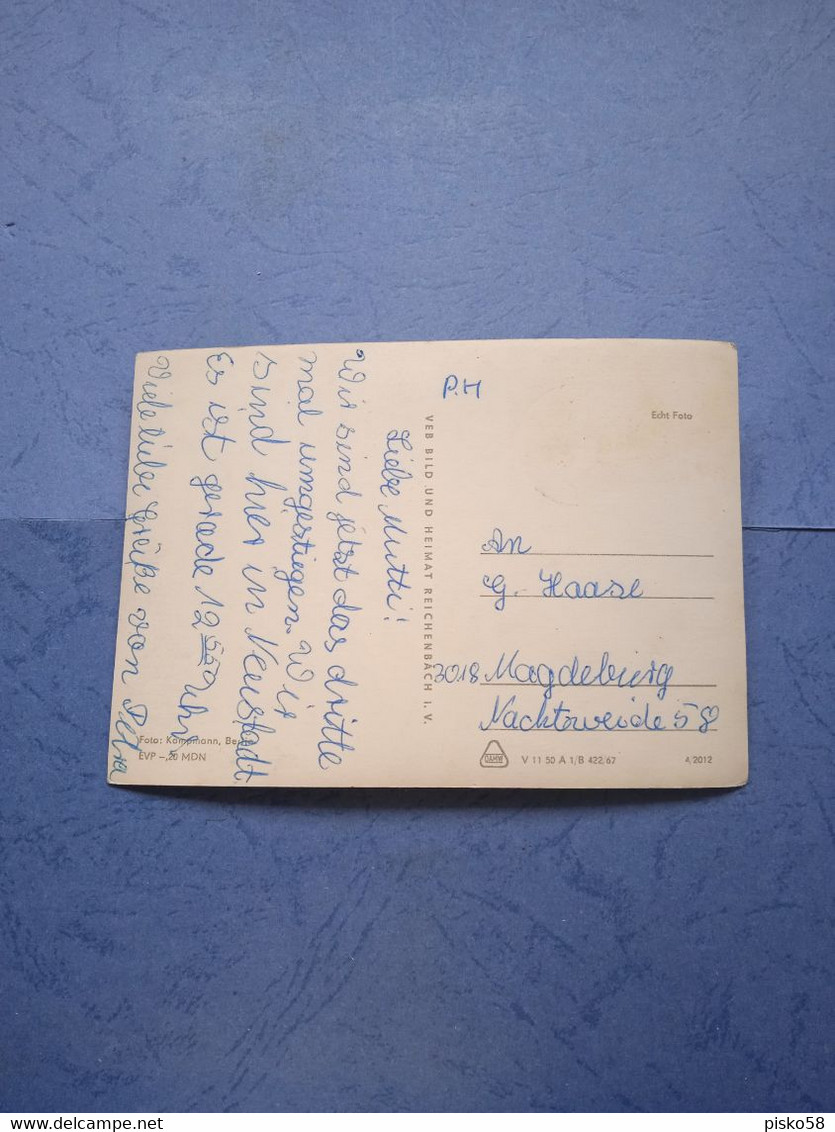 P.H
Liebe Mutti!
Wir sind jetzt das dritte
mal umgestiegen. Wir
sind hier in Neustadt
Es ist gerade 12 55 Uhr.
Viele liebe Grüße von Petra
VEB BILD UND HEIMAT REICHENBACH I. V.
Echt Foto
An
G. Haase
3018 Magdeburg
Nacktweide 58
Foto: Kampmann, Ber
EVP –,20 MDN
DAMW
V 11 50 A 1/B 422/67
4/2012
delcampe.net
pisko58